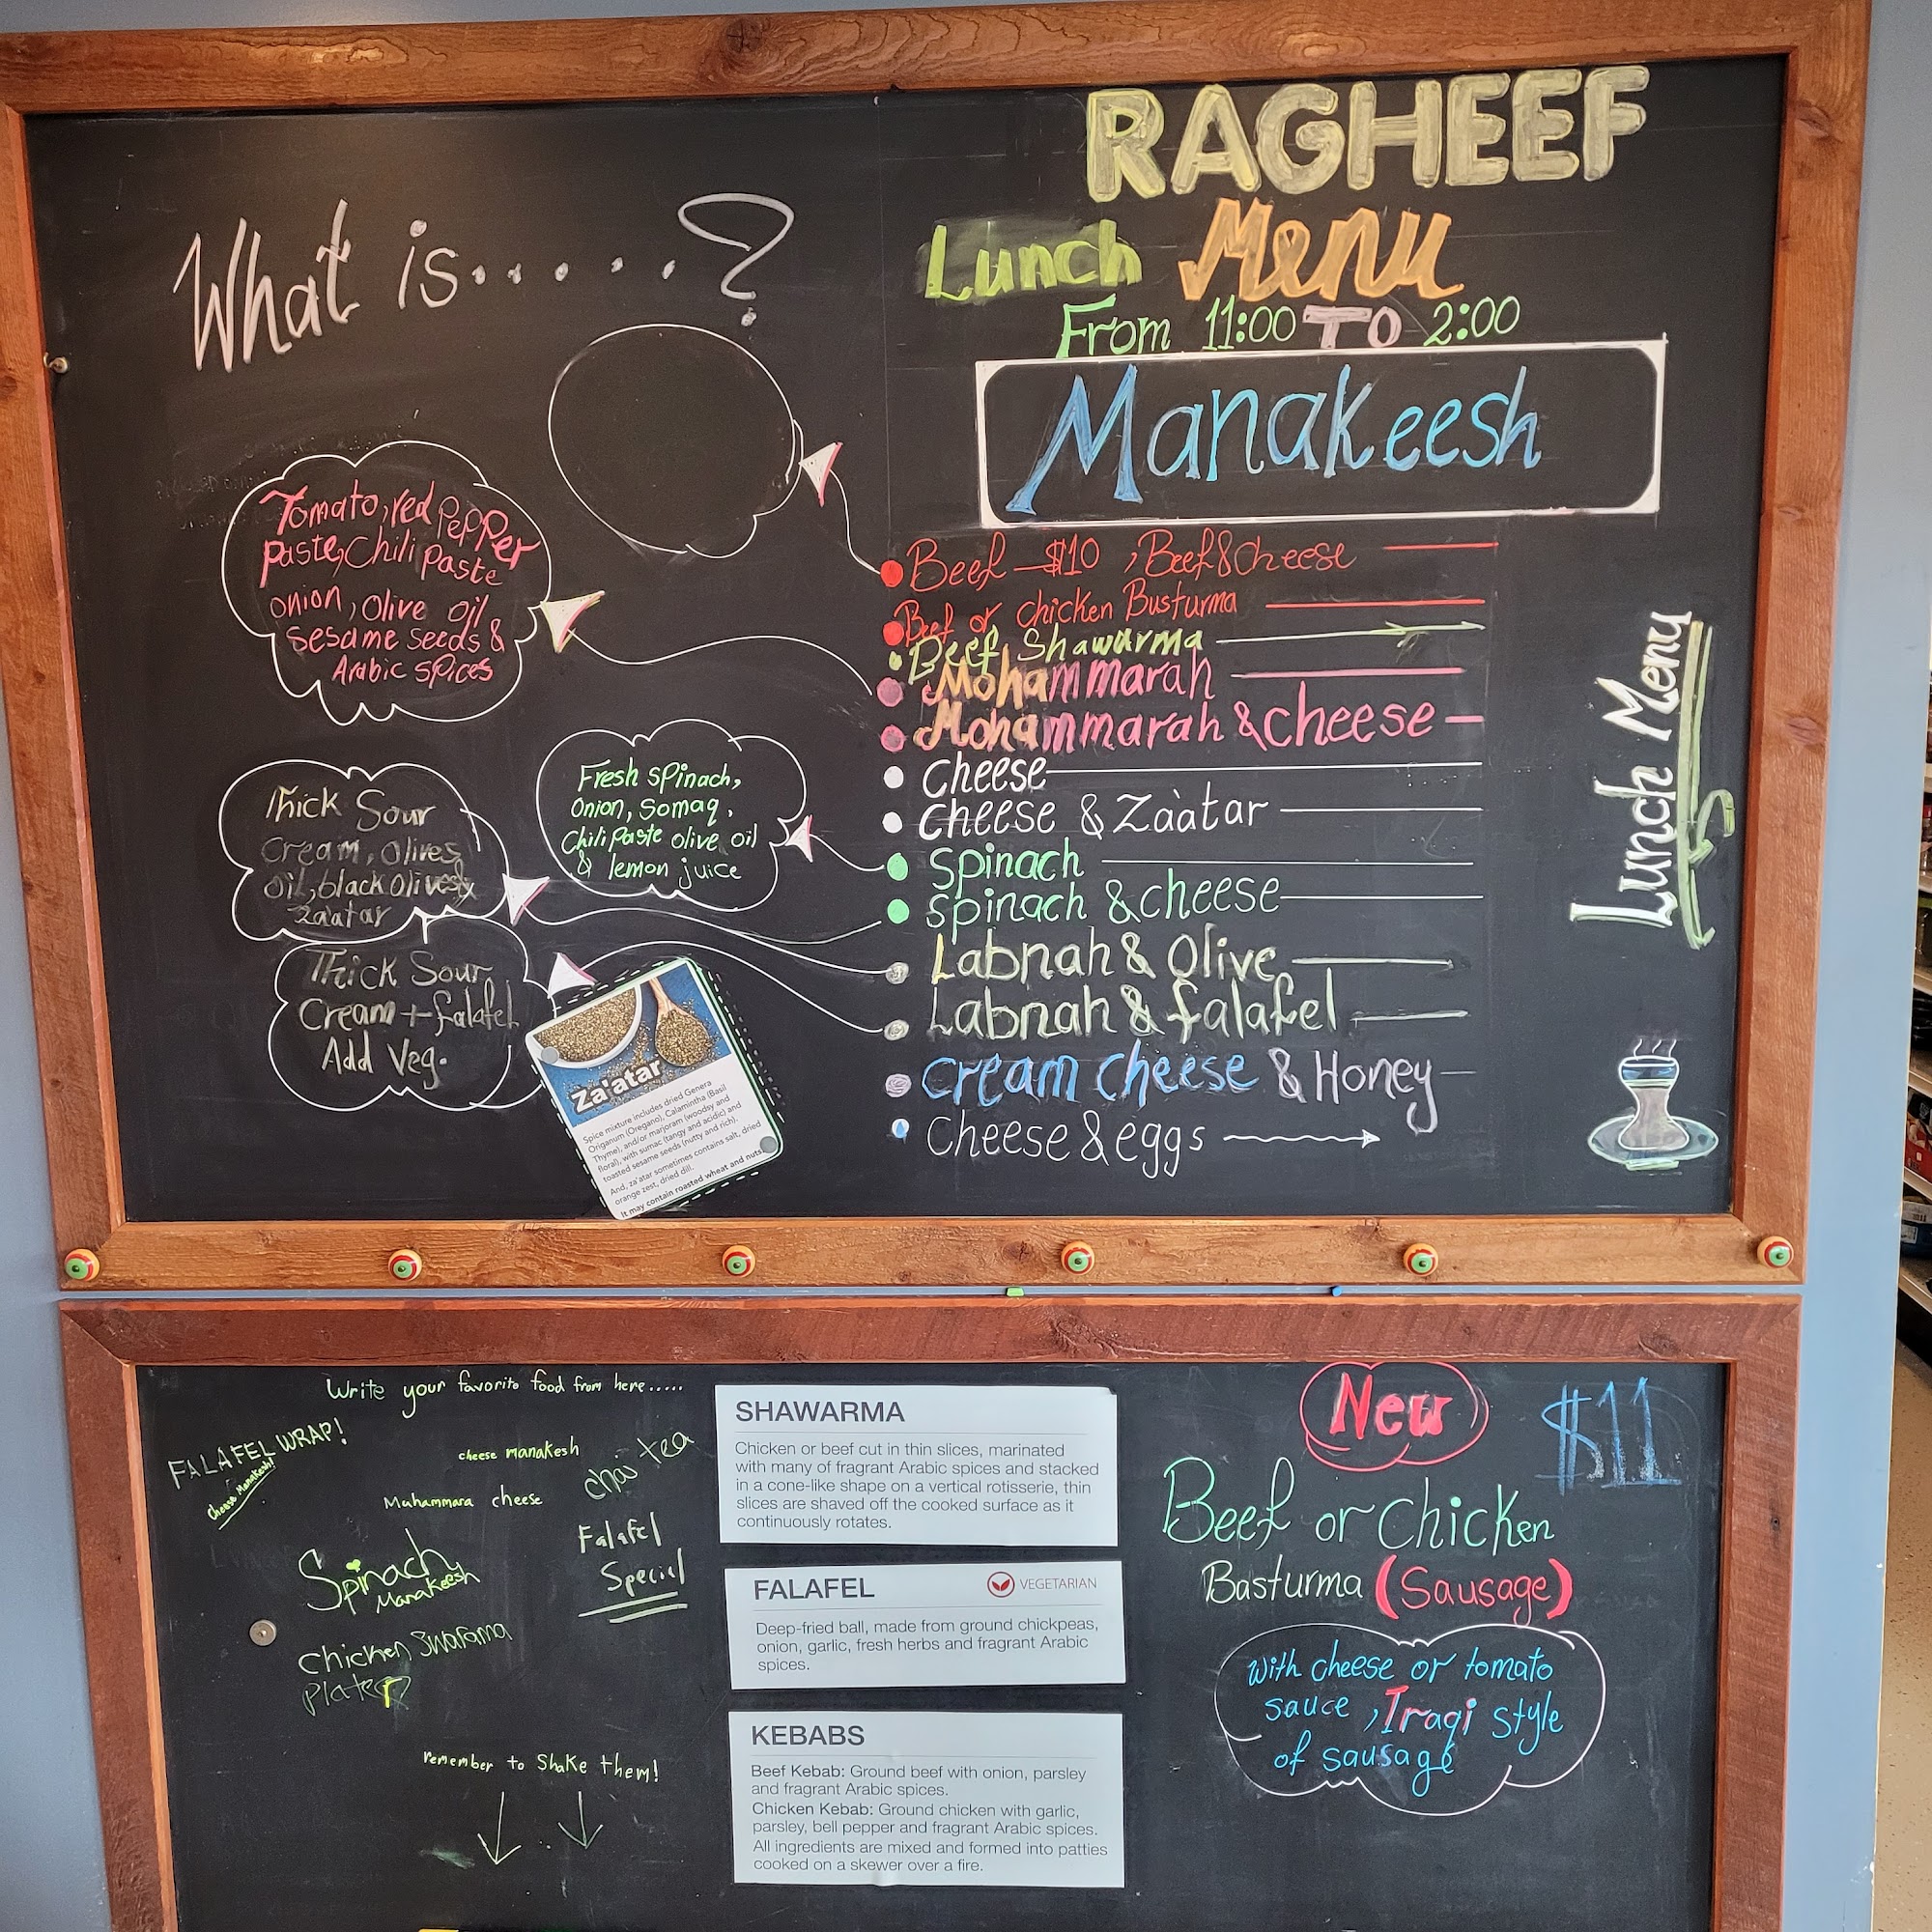 RAGHEEF
Lunch Menu
From 11:00 TO 2:00
Manakeesh
What is......?
Tomato, red pepper
paste, Chili paste
onion, olive oil
Sesame seeds &
Arabic spices
Thick Sour
cream, olives
oil, black olives &
Za'atar
Fresh spinach,
onion, somaq,
Chili paste olive oil
& lemon juice
Thick Sour
Cream + falafel
Add Veg.
Beef $10, Beef & cheese
Beef or chicken Busturma
Beef Shawarma
Mohammarah
Mohammarah & cheese
cheese
cheese & Zàatar
Spinach
spinach & cheese
Labnah & Olive
Labnah & falafel
cream cheese & Honey
Cheese & eggs
Lunch Menu
Za'atar
Spice mixture includes dried Genera
Origanum (Oregano), Calamintha (Basil
Thyme), and/or marjoram (woodsy and
floral), with sumac (tangy and acidic) and
toasted sesame seeds (nutty and rich).
And, za'atar sometimes contains salt, dried
orange zest, dried dill.
It may contain roasted wheat and nuts.
Write your favorito food from here.....
FALAFEL WRAP!
Cheese Manakesh!
cheese manakesh
chai tea
Muhammara cheese
Falafel
Special
Spinach
Manakeesh
Chicken Swarama
plater
remember to Shake them!
SHAWARMA
Chicken or beef cut in thin slices, marinated
with many of fragrant Arabic spices and stacked
in a cone-like shape on a vertical rotisserie, thin
slices are shaved off the cooked surface as it
continuously rotates.
FALAFEL
VEGETARIAN
Deep-fried ball, made from ground chickpeas,
onion, garlic, fresh herbs and fragrant Arabic
spices.
KEBABS
Beef Kebab: Ground beef with onion, parsley
and fragrant Arabic spices.
Chicken Kebab: Ground chicken with garlic,
parsley, bell pepper and fragrant Arabic spices.
All ingredients are mixed and formed into patties
cooked on a skewer over a fire.
New
$11
Beef or chicken
Basturma (Sausage)
with cheese or tomato
sauce, Iraqi style
of sausage